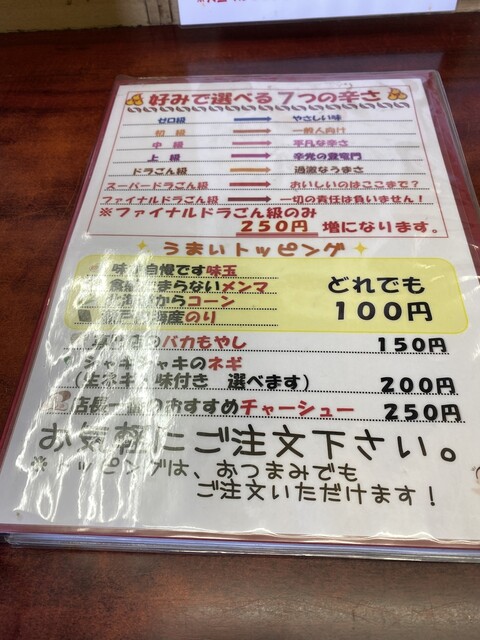 好みで選べる7つの辛さ
ゼロ級 → やさしい味
初級 → 一般人向け
中級 → 平凡な辛さ
上級 → 辛党の登竜門
ドラごん級 → 過激なうまさ
スーパードラごん級 → おいしいのはここまで？
ファイナルドラごん級 → 一切の責任は負いません！
※ファイナルドラごん級のみ
250円 増になります。
うまいトッピング
味自慢です味玉
食感たまらないメンマ
北海道からコーン
瀬戸内海産のり
どれでも
100円
バカもやし 150円
シャキシャキのネギ
(生ネギ・味付き 選べます) 200円
店長一番のおすすめチャーシュー 250円
お気軽にご注文下さい。
※トッピングは、おつまみでも
ご注文いただけます！